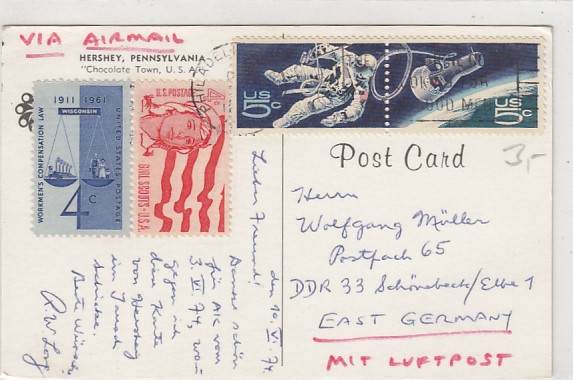 VIA AIRMAIL
HERSHEY, PENNSYLVANIA
"Chocolate Town, U.S.A."
PHILADEL
5c US
US 5c
1911 1961
WISCONSIN
WORKMEN'S COMPENSATION LAW
UNITED STATES POSTAGE
4c
U.S. POSTAGE
4c
GIRL SCOUTS·U.S.A.
Post Card
3,-
Herrn
Wolfgang Müller
Postfach 65
DDR 33 Schönebeck/Elbe 1
EAST GERMANY
MIT LUFTPOST
den 10. VI. 74
Lieber Freund!
Danke schön
für AK vom
3. VI. 74, wo
gegen ich
diese Karte
von Hershey
im Tausch
schicke.
Beste Wünsche
R.W. Long